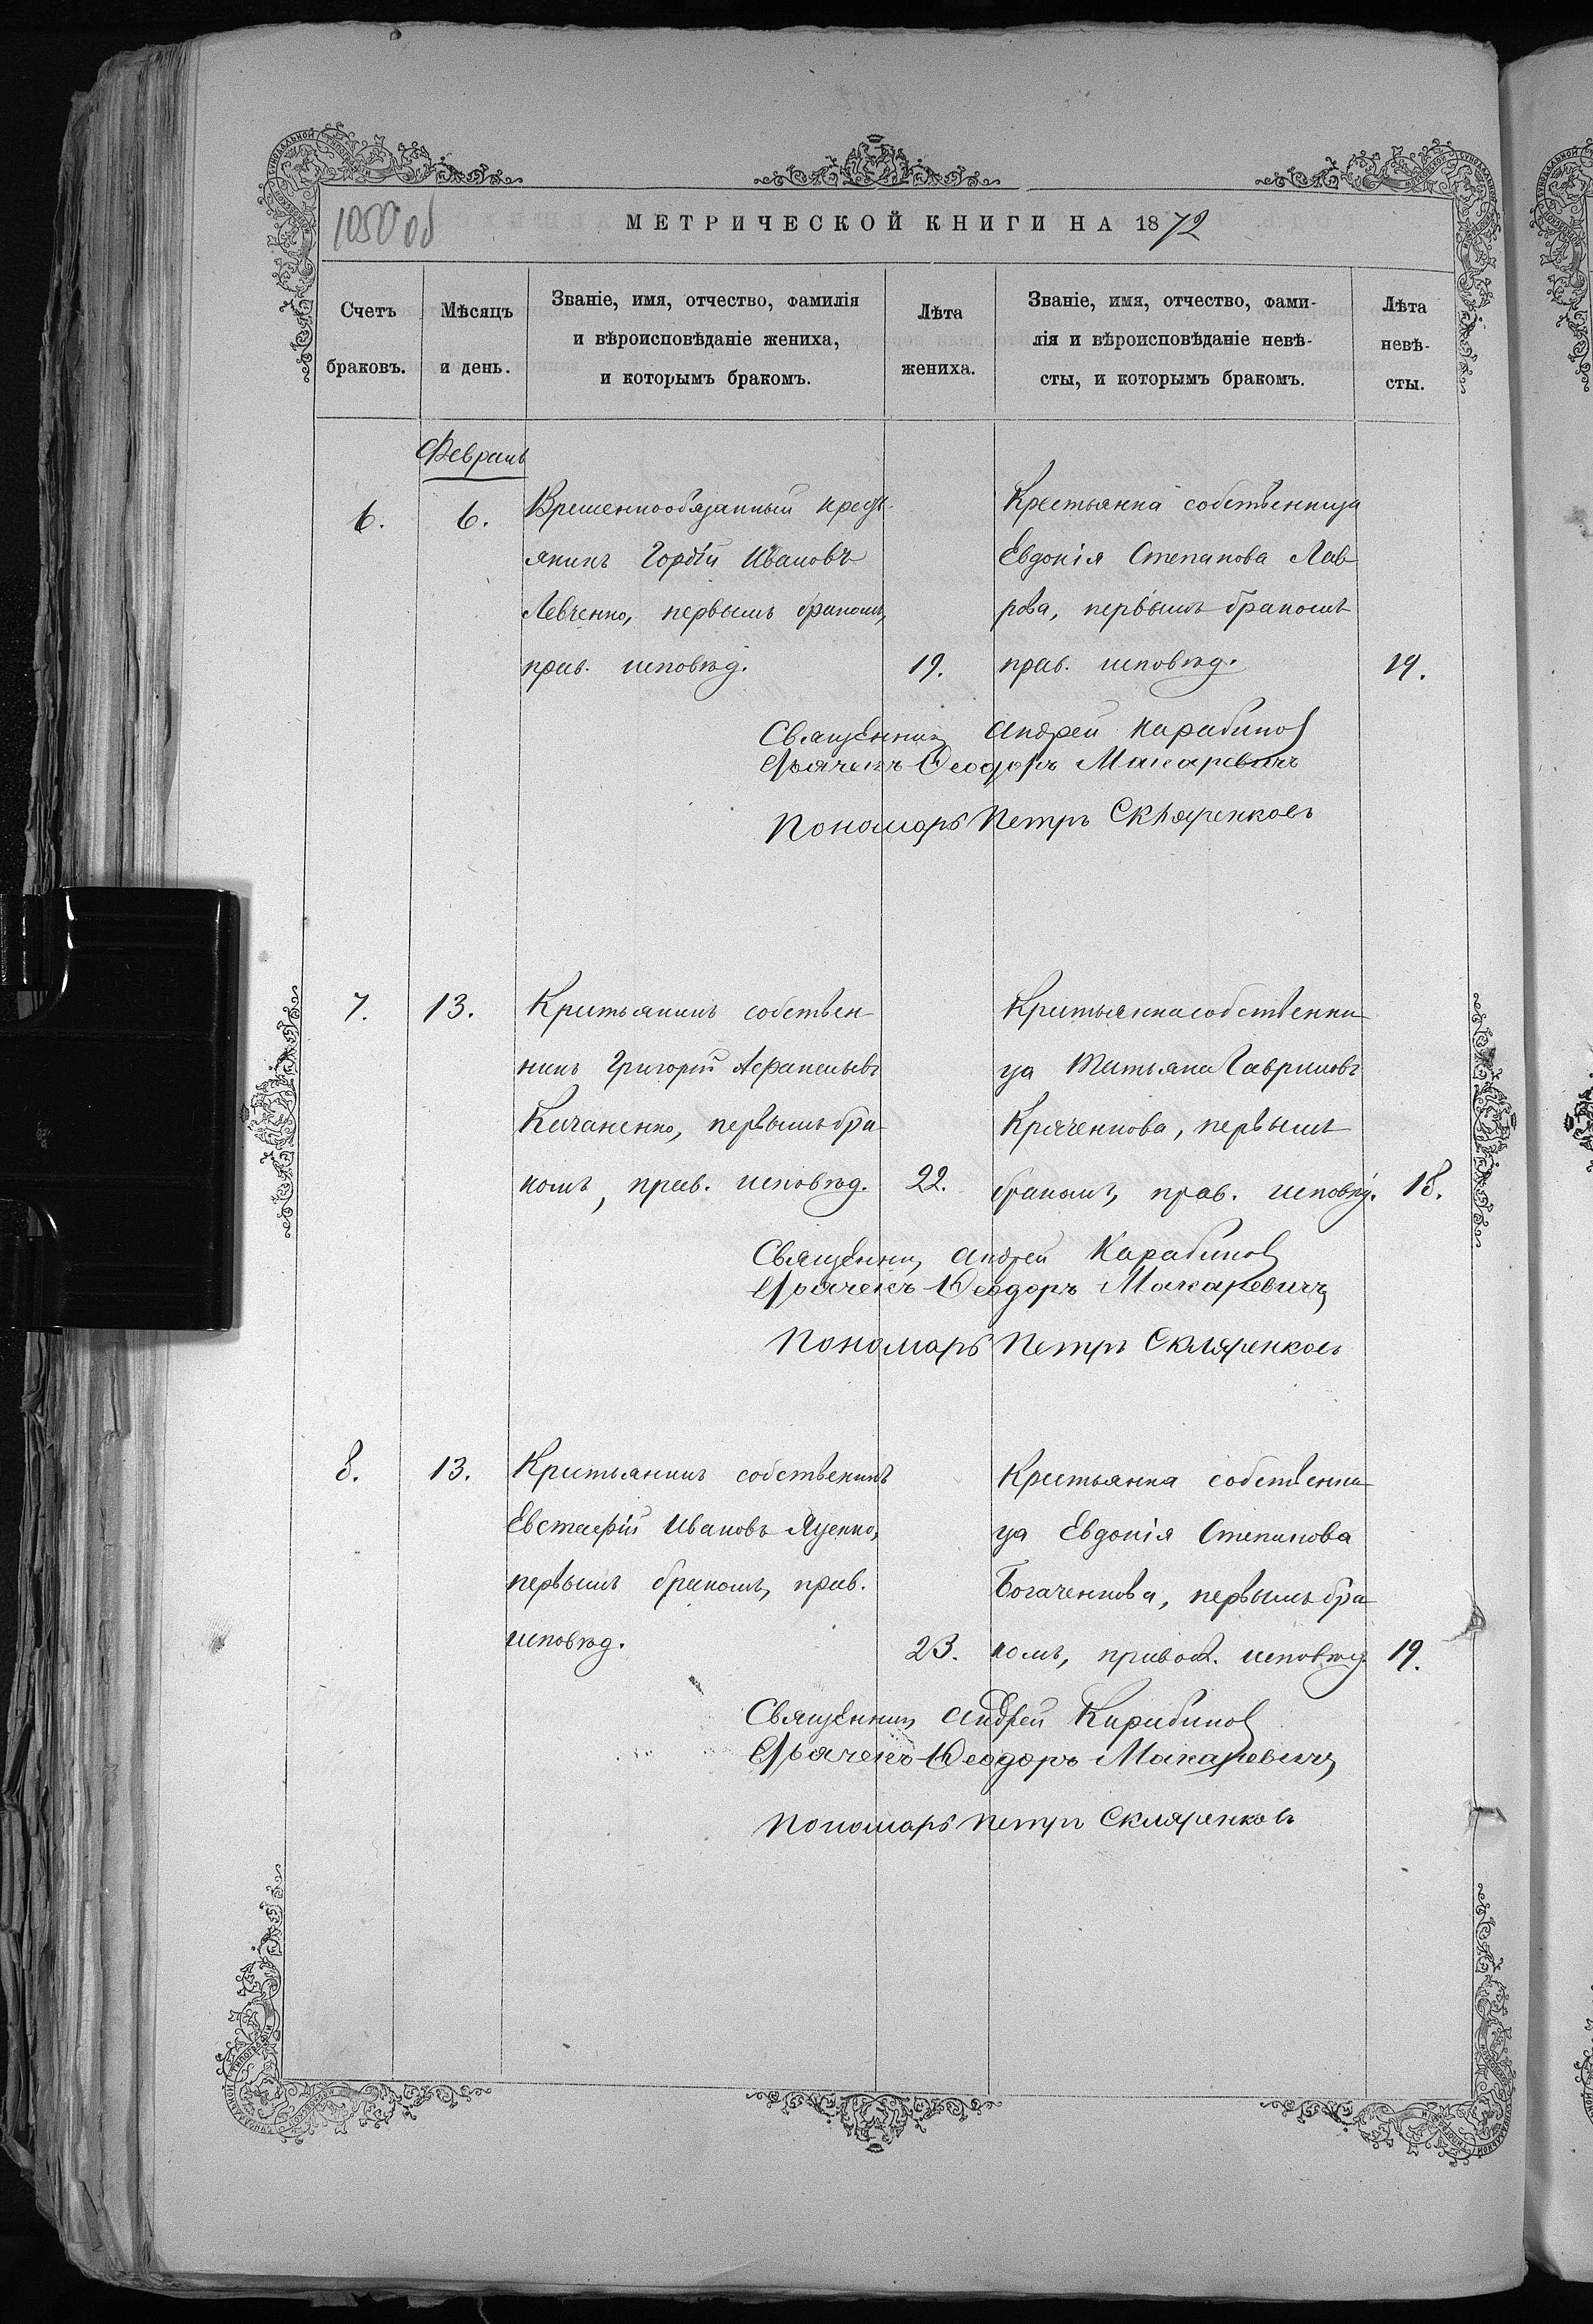 1050 об
МЕТРИЧЕСКОЙ КНИГИ НА 1872
Счетъ браковъ.
Мѣсяцъ и день.
Званіе, имя, отчество, фамилія
и вѣроисповѣданіе жениха,
и которымъ бракомъ.
Лѣта жениха.
Званіе, имя, отчество, фами-
лія и вѣроисповѣданіе невѣ-
сты, и которымъ бракомъ.
Лѣта невѣ-
сты.
Февраль
6.
6.
Временнообязанный крест-
янинъ Гордій Ивановъ
Левченко, первымъ бракомъ,
прав. исповѣд.
19.
Крестьянка собственница
Евдокія Степанова Лав-
рова, первымъ бракомъ
прав. исповѣд.
19.
Священник Андрей Карабинов
Дьячекъ Феодоръ Макаревичъ
Пономарь Петръ Скляренковъ
7.
13.
Крестьянинъ собствен-
никъ Григорій Афанасьевъ
Качаненко, первымъ бра-
комъ, прав. исповѣд.
22.
Крестьянка собственни-
ца Татьяна Гаврилова
Кряченкова, первымъ
бракомъ, прав. исповѣд.
18.
Священник Андрей Карабинов
Дьячекъ Феодоръ Макаревичъ
Пономарь Петръ Скляренковъ
8.
13.
Крестьянинъ собственникъ
Евстафій Ивановъ Яценко,
первымъ бракомъ, прав.
исповѣд.
23.
Крестьянка собственни-
ца Евдокія Степанова
Богаченкова, первымъ бра-
комъ, правосл. исповѣд.
19.
Священник Андрей Карабинов
Дьячекъ Феодоръ Макаревичъ
Пономарь Петръ Скляренковъ